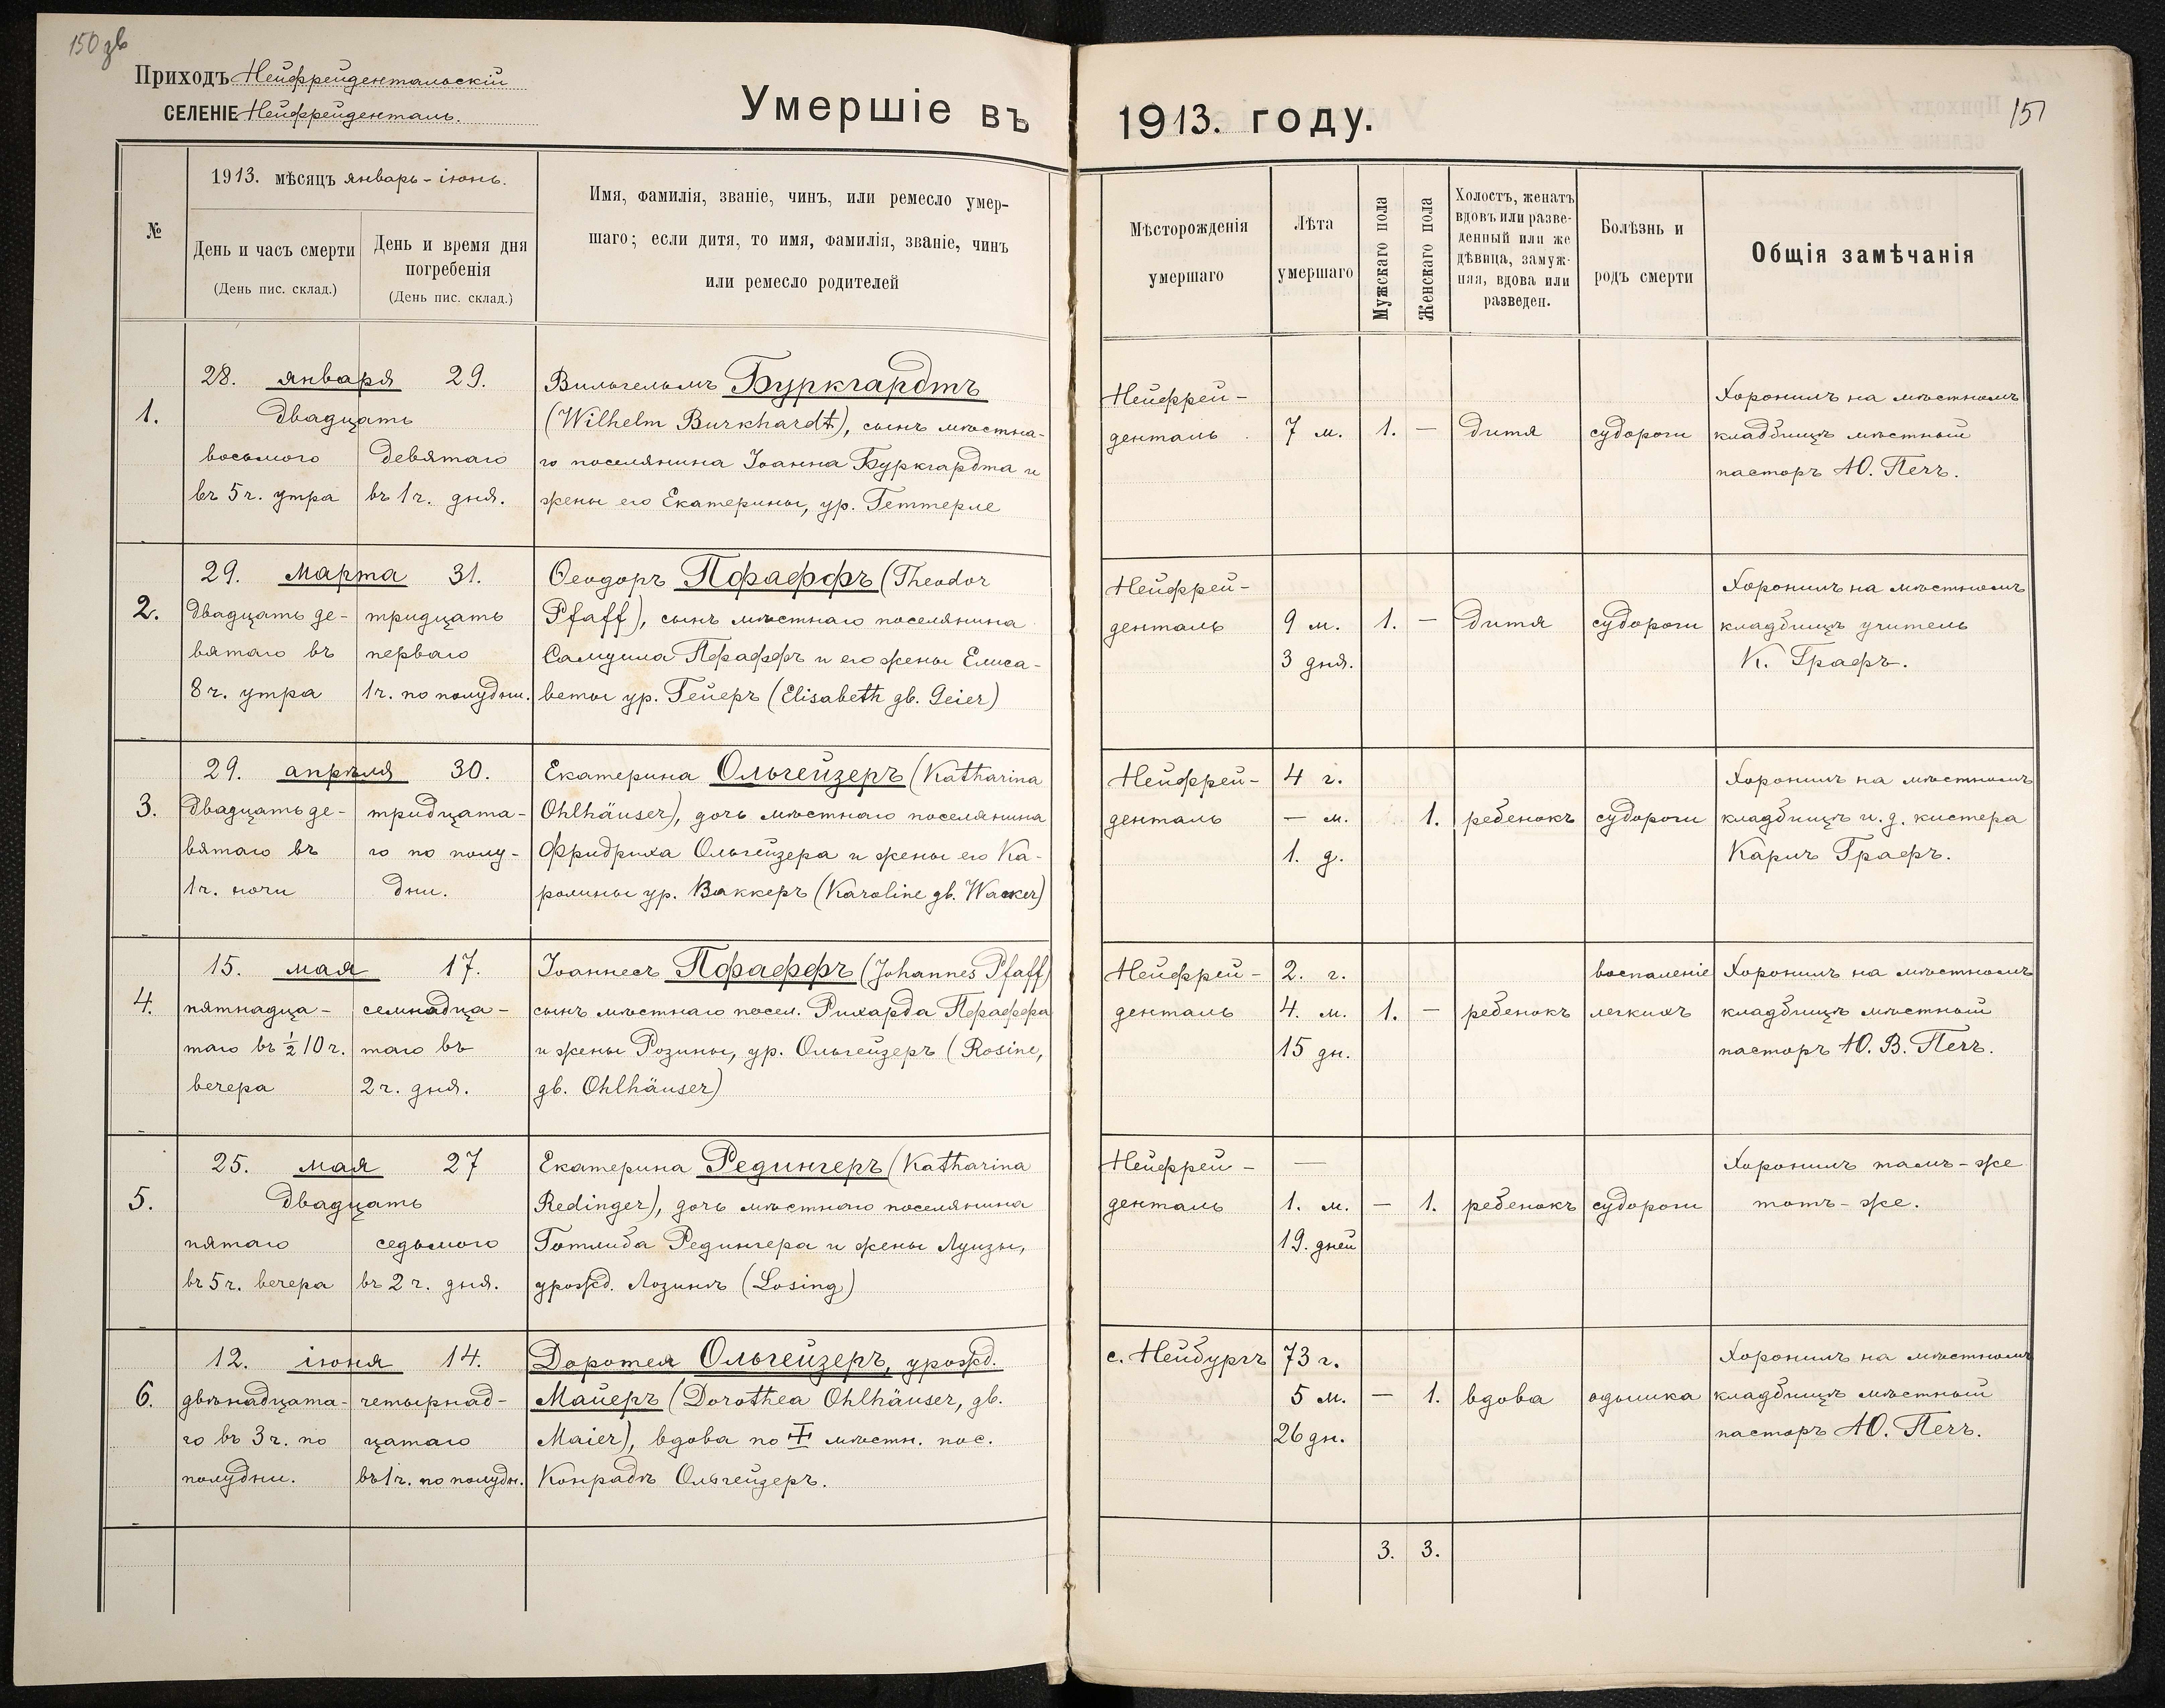 150 зв
Приходъ Нейфрейдентальскій
СЕЛЕНІЕ Нейфрейденталь.
Умершіе въ
1913. году.
151
№
1913. мѣсяцъ январь - іюнь.
День и часъ смерти
(День пис. склад.)
День и время дня
погребенія
(День пис. склад.)
Имя, фамилія, званіе, чинъ, или ремесло умер-
шаго; если дитя, то имя, фамилія, званіе, чинъ
или ремесло родителей
Мѣсторожденія
умершаго
Лѣта
умершаго
Мужскаго пола
Женскаго пола
Холостъ, женатъ
вдовъ или разве-
денный или же
дѣвица, замуж-
няя, вдова или
разведен.
Болѣзнь и
родъ смерти
Общія замѣчанія
1.
28. января 29.
двадцать
восьмого девятаго
въ 5 ч. утра въ 1 ч. дня.
Вильгельмъ Буркгардтъ
(Wilhelm Burkhardt), сынъ мѣстна-
го поселянина Іоанна Буркгардта и
жены его Екатерины, ур. Геттерле
Нейфрей-
денталь
7 м.
1.
—
дитя
судороги
Хоронилъ на мѣстномъ
кладбищѣ мѣстный
пасторъ Ю. Печъ.
2.
29. марта 31.
двадцать де- тридцать
вятаго въ перваго
8 ч. утра 1 ч. по полудни.
Ѳеодоръ Пфаффъ (Theodor
Pfaff), сынъ мѣстнаго поселянина
Самуила Пфаффъ и его жены Елиса-
веты ур. Гейеръ (Elisabeth gb. Geier)
Нейфрей-
денталь
9 м.
3 дня.
1.
—
дитя
судороги
Хоронилъ на мѣстномъ
кладбищѣ учитель
К. Графъ.
3.
29. апрѣля 30.
двадцать де- тридцата-
вятаго въ го по полу-
1 ч. ночи дни.
Екатерина Ольгейзеръ (Katharina
Ohlhäuser), дочь мѣстнаго поселянина
Фридриха Ольгейзера и жены его Ка-
ролины ур. Ваккеръ (Karoline gb. Wacker)
Нейфрей-
денталь
4 г.
— м.
1. д.
1.
ребенокъ
судороги
Хоронилъ на мѣстномъ
кладбищѣ и. д. кистера
Карлъ Графъ.
4.
15. мая 17.
пятнадца- семнадца-
таго въ ½ 10 ч. таго въ
вечера 2 ч. дня.
Іоаннесъ Пфаффъ (Johannes Pfaff)
сынъ мѣстнаго посел. Рихарда Пфаффа
и жены Розины, ур. Ольгейзеръ (Rosine,
gb. Ohlhäuser)
Нейфрей-
денталь
2. г.
4. м.
15 дн.
1.
—
ребенокъ
воспаленіе
легкихъ
Хоронилъ на мѣстномъ
кладбищѣ мѣстный
пасторъ Ю. В. Печъ.
5.
25. мая 27
двадцать
пятаго седьмого
въ 5 ч. вечера въ 2 ч. дня.
Екатерина Редингеръ (Katharina
Redinger), дочь мѣстнаго поселянина
Готлиба Редингера и жены Луизы,
урожд. Лозингъ (Losing)
Нейфрей-
денталь
—
1. м.
19. дней
—
1.
ребенокъ
судороги
Хоронилъ тамъ-же
тотъ-же.
6.
12. іюня 14.
двѣнадцата- четырнад-
го въ 3 ч. по цатаго
полудни. въ 1 ч. по полудн.
Доротея Ольгейзеръ, урожд.
Майеръ (Dorothea Ohlhäuser, gb.
Maier), вдова по ✝ мѣстн. пос.
Конрадѣ Ольгейзеръ.
с. Нейбургъ
73 г.
5 м.
26 дн.
—
1.
вдова
одышка
Хоронилъ на мѣстномъ
кладбищѣ мѣстный
пасторъ Ю. Печъ.
3. 3.